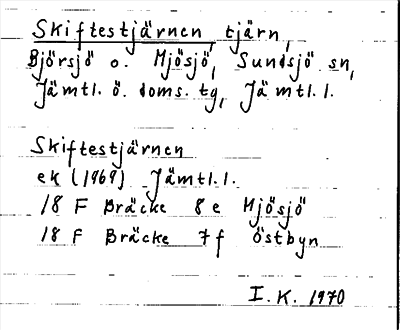 Skiftestjärnen tjärn,
Björsjö o. Mjösjö, Sundsjö sn,
Jämtl. ö. doms. tg, Jämtl. l.
Skiftestjärnen
ek (1969) Jämtl. l.
18 F Bräcke 8 e Mjösjö
18 F Bräcke 7 f Östbyn
I. K. 1970